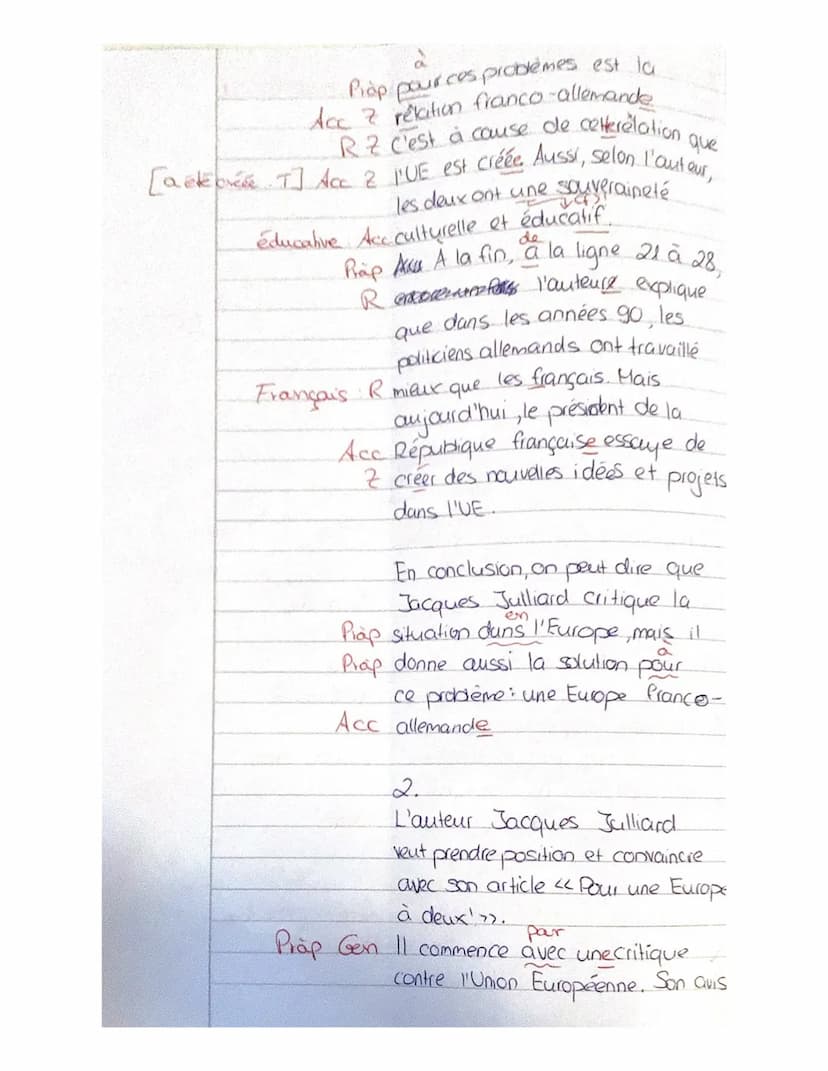 à
Präp pour ces problèmes est la
Acc Z rélation franco-allemande
R Z C'est à cause de cette rélation que
[a été créée T] Acc Z l'UE est créée. Aussi, selon l'auteur,
les deux ont une souveraineté
éducative Acc culturelle et éducatif.
de
Präp A la fin, à la ligne 21 à 28,
R l'auteure explique
que dans les années 90, les
politiciens allemands ont travaillé
Français R mieux que les français. Mais
aujourd'hui, le président de la
Acc République française essaye de
Z créer des nouvelles idées et projets
dans l'UE.
En conclusion, on peut dire que
Jacques Julliard critique la
en
Präp situation dans l'Europe, mais il
à
Präp donne aussi la solution pour
ce problème: une Europe franco-
Acc allemande
2.
L'auteur Jacques Julliard
veut prendre position et convaincre
avec son article << Pour une Europe
à deux! >>.
par
Präp Gen Il commence avec une critique
contre l'Union Européenne. Son avis